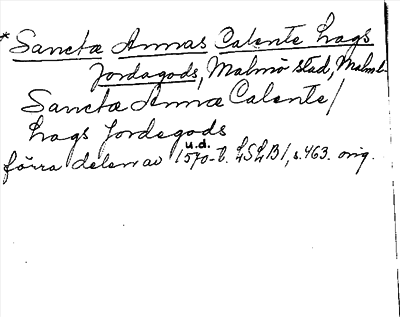 * Sanctæ Annas Calente Lags
Jordagods, Malmö stad, Malmh.
Sanctæ Annæ Calente/
Lags Jordegods
u.d.
förra delen av 1570-t. LSLB1, s. 463. orig.